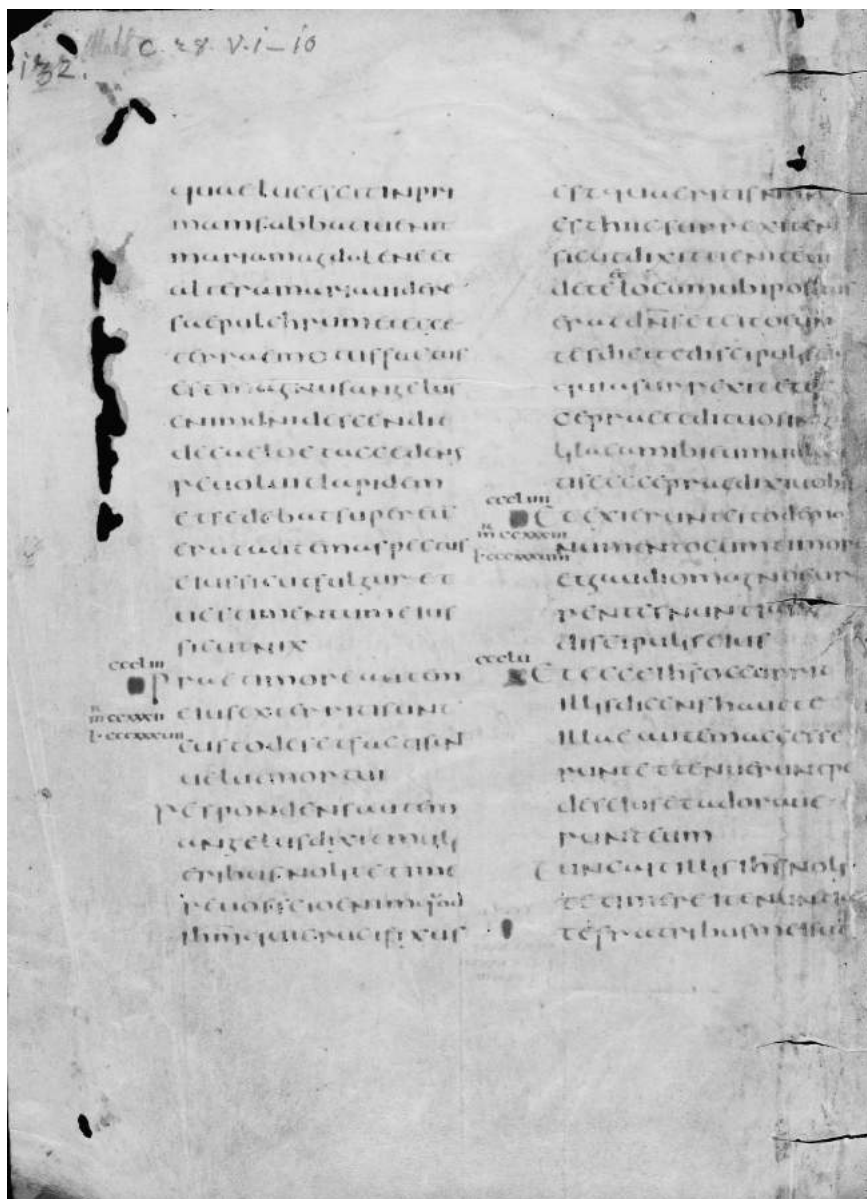 132.
Math C. 28. V. i_10
quae lucescit in pri
mam sabbati uenit
maria magdalene et
altera maria uidere
saepulchrum et ecce
terrae motus factus
est magnus angelus
enim dni descendit
de caelo et accedens
reuoluit lapidem
et sedebat super eu
erat autem aspectus
eius sicut fulgur et
uestimentum eius
sicut nix
cccliii
Prae timore autem
eius exterriti sunt
m ccxxxii
l cccxxxuiii
custodes et facti sunt
uelut mortui
Respondens autem
angelus dixit muli
eribus nolite time
re uos scio enim quod
ihm qui crucifixus
est quaeritis non
est hic surrexit en
sicut dixit uenite ui
dete et locum ubi pos
erat dns et cito eun
tes dicite discipulis
quia surrexit et ec
ce praecedit uos in
galilaeam ibi eum uide
tis ecce praedixi uobis
cccliiii
Et exierunt cito de mo
m ccxxxiii
numento cum timore
l cccxxxuiiii
et gaudio magno cur
rentes nuntiare
discipulis eius
ccclu
Et ecce ihs occurrit
illis dicens hauete
illae autem accesse
runt et tenuerunt pe
des eius et adoraue
runt eum
Tunc ait illis ihs noli
te timere ite nuntia
te fratribus meis ut